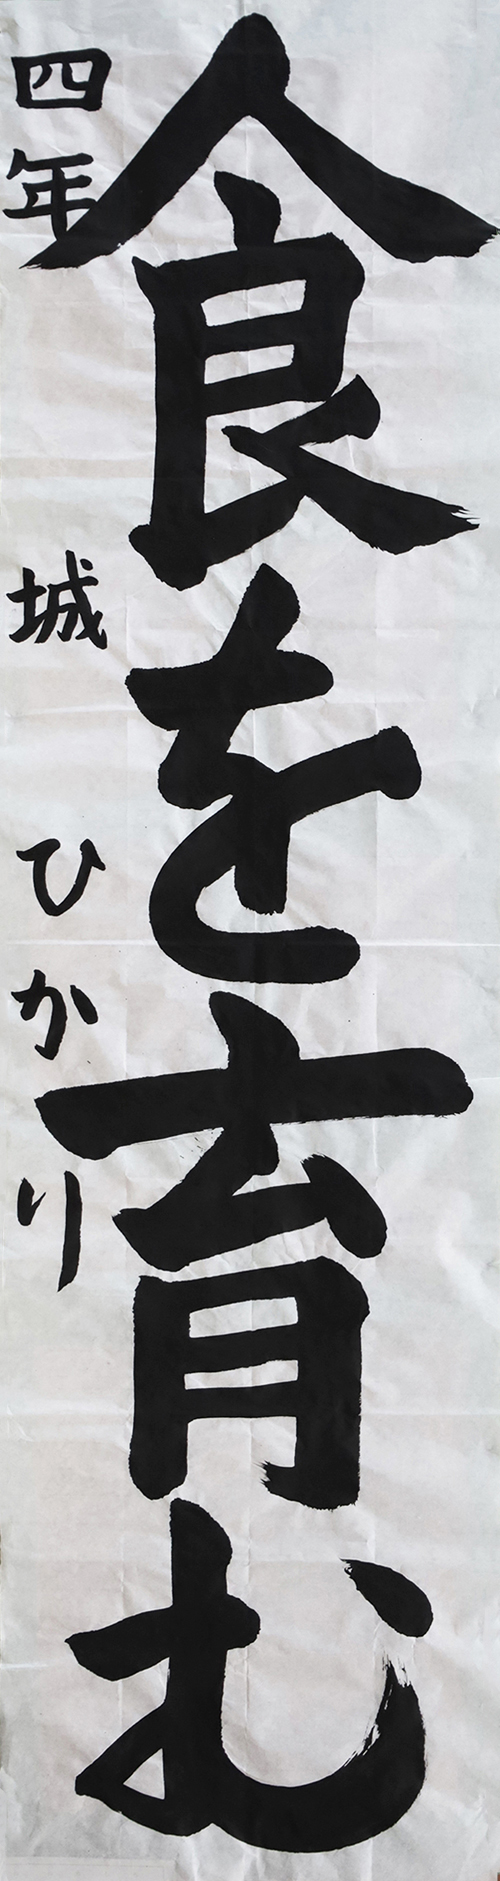 食を育む
四年 城 ひかり